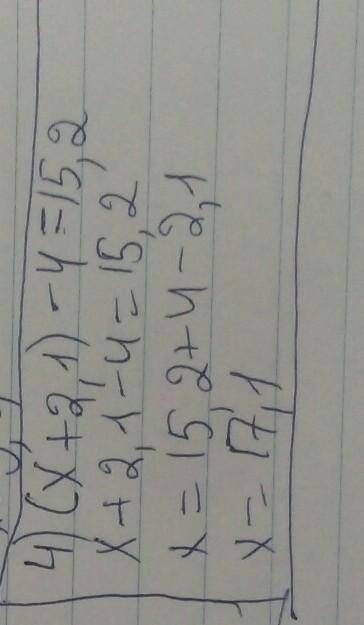 4) (x+2,1)-4=15,2
x+2,1-4=15,2
x=15,2+4-2,1
x=17,1